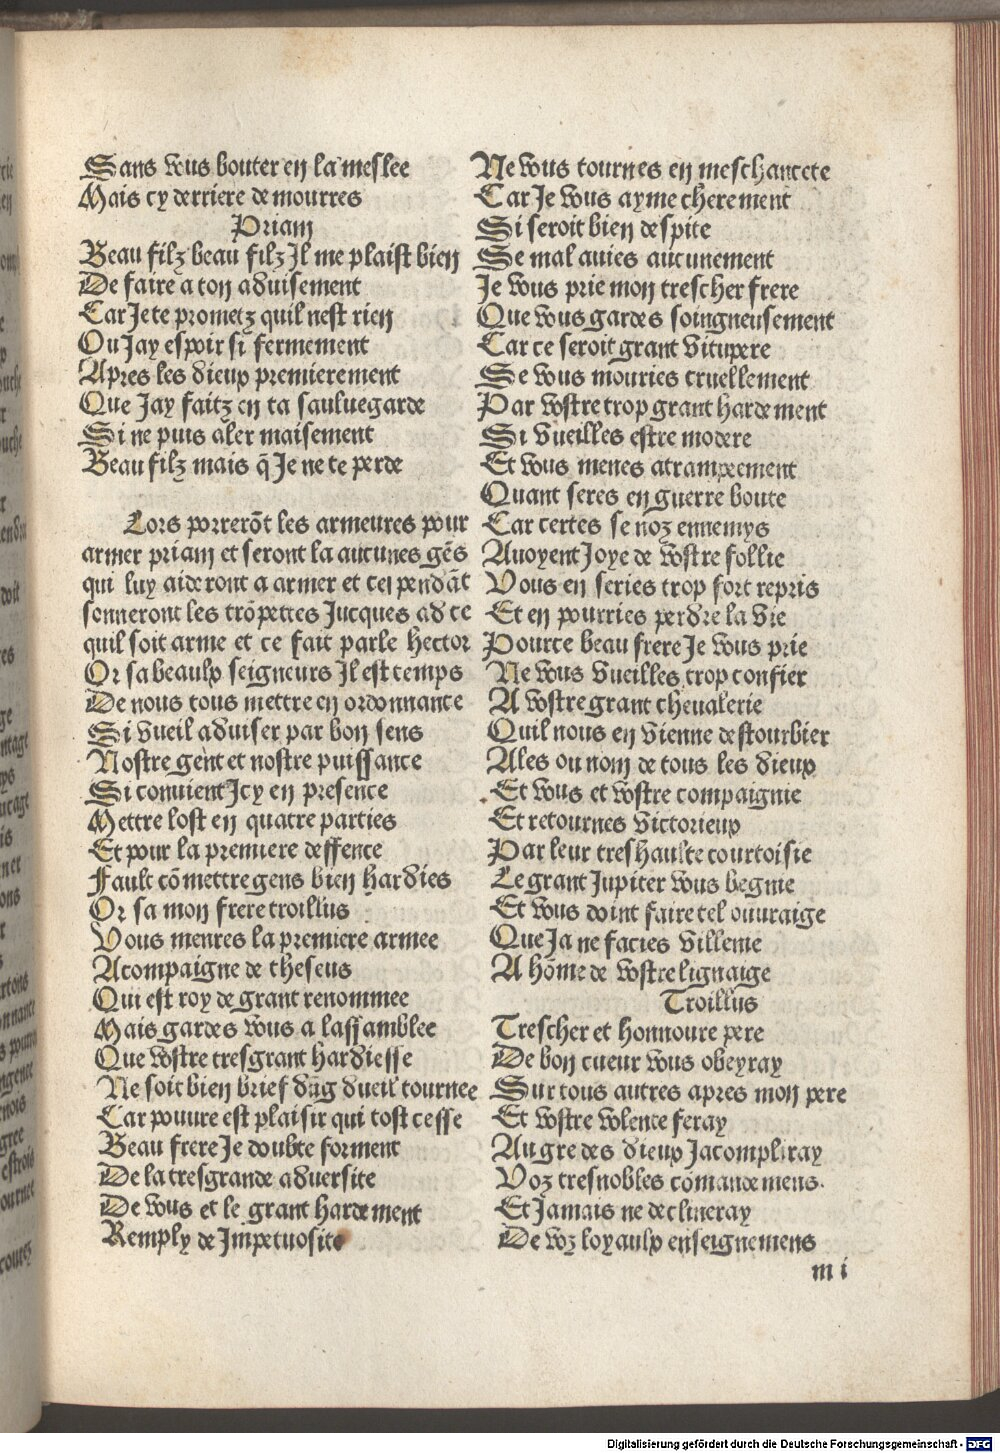 Sans vous bouter en la meslee
Mais cy derriere demourres
Priam
Beau filz beau filz Il me plaist bien
De faire a ton aduisement
Car Je te prometz quil nest rien
Ou Jay espoir si fermement
Apres les dieux premierement
Que Jay faitz en ta sauluegarde
Si ne puis aler maisement
Beau filz mais q̃ Je ne te perde
Lors porrerõt les armeures pour
armer priam et seront la aucunes gẽs
qui luy aideront a armer et cependãt
sonneront les trõpettes Jucques ad ce
quil soit arme et ce fait parle hector
Or sa beaulx seigneurs Il est temps
De nous tous mettre en ordonnance
Si vueil aduiser par bon sens
Nostre gent et nostre puissance
Si conuient Icy en presence
Mettre lost en quatre parties
Et pour la premiere deffence
Fault cõmettre gens bien hardies
Or sa mon frere troillus
Vous menres la premiere armee
Acompaigne de theseus
Qui est roy de grant renommee
Mais gardes vous a lassamblee
Que vostre tresgrant hardiesse
Ne soit bien brief dũg dueil tournee
Car pouure est plaisir qui tost cesse
Beau frere Je doubte forment
De la tresgrande aduersite
De vous et le grant hardement
Remply de Impetuosite
Ne vous tournes en meschancete
Car Je vous ayme cherement
Si seroit bien despite
Se mal auies aucunement
Je vous prie mon trescher frere
Que vous gardes soingneusement
Car ce seroit grant vitupere
Se vous mouries cruellement
Par vostre trop grant hardement
Si vueilles estre modere
Et vous menes atrampeement
Quant seres en guerre boute
Car certes se noz ennemys
Auoyent Joye de vostre follie
Vous en series trop fort repris
Et en pourries perdre la vie
Pource beau frere Je vous prie
Ne vous vueilles trop confier
A vostre grant cheualerie
Quil nous en vienne destourbier
Ales ou nom de tous les dieux
Et vous et vostre compaignie
Et retournes victorieux
Par leur treshaulte courtoisie
Le grant Jupiter vous begnie
Et vous doint faire tel ouuraige
Que Ja ne facies villenie
A hõme de vostre lignaige
Troillus
Trescher et honnoure pere
De bon cueur vous obeyray
Sur tous autres apres mon pere
Et vostre volente feray
Au gre des dieux Jacompliray
Voz tresnobles comandemens.
Et Jamais ne declineray
De voz loyaulx enseignemens
m i
Digitalisierung gefördert durch die Deutsche Forschungsgemeinschaft - DFG